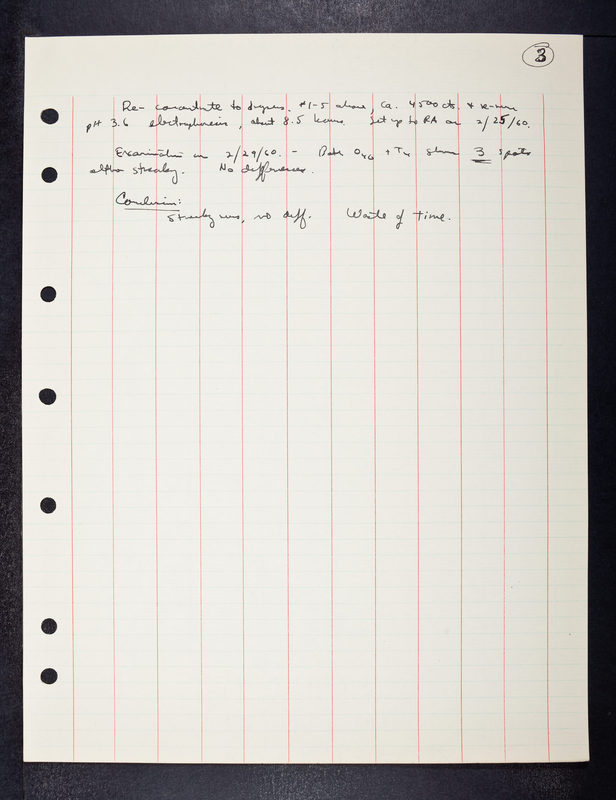 3
Re-concentrate to dryness. #1-5 above, ca. 4500 cts. & re-run
pH 3.6 electrophoresis, about 8.5 hours. Set up to RA on 2/25/60.
Examination on 2/29/60. - Both + T4 show 3 spots
altho streaky. No differences.
Conclusion:
Streaky runs, no diff. Waste of time.